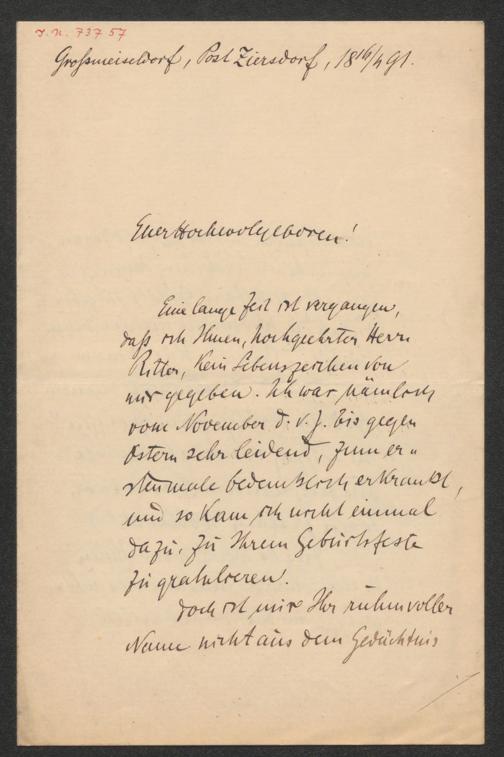 J. N. 73757
Großmeiseldorf, Post Ziersdorf, 18 16/4 91.
Euer Hochwolgeboren!
Eine lange Zeit ist vergangen,
daß ich Ihnen, hochgeehrter Herr
Ritter, kein Lebenszeichen von
mir gegeben. Ich war nämlich
vom November d. v. J. bis gegen
Ostern sehr leidend, zum er-
stenmale bedenklich erkrankt,
und so kam ich nicht einmal
dazu, zu Ihrem Geburtsfeste
zu gratulieren.
Doch ist mir Ihr ruhmvoller
Name nicht aus dem Gedächtnis